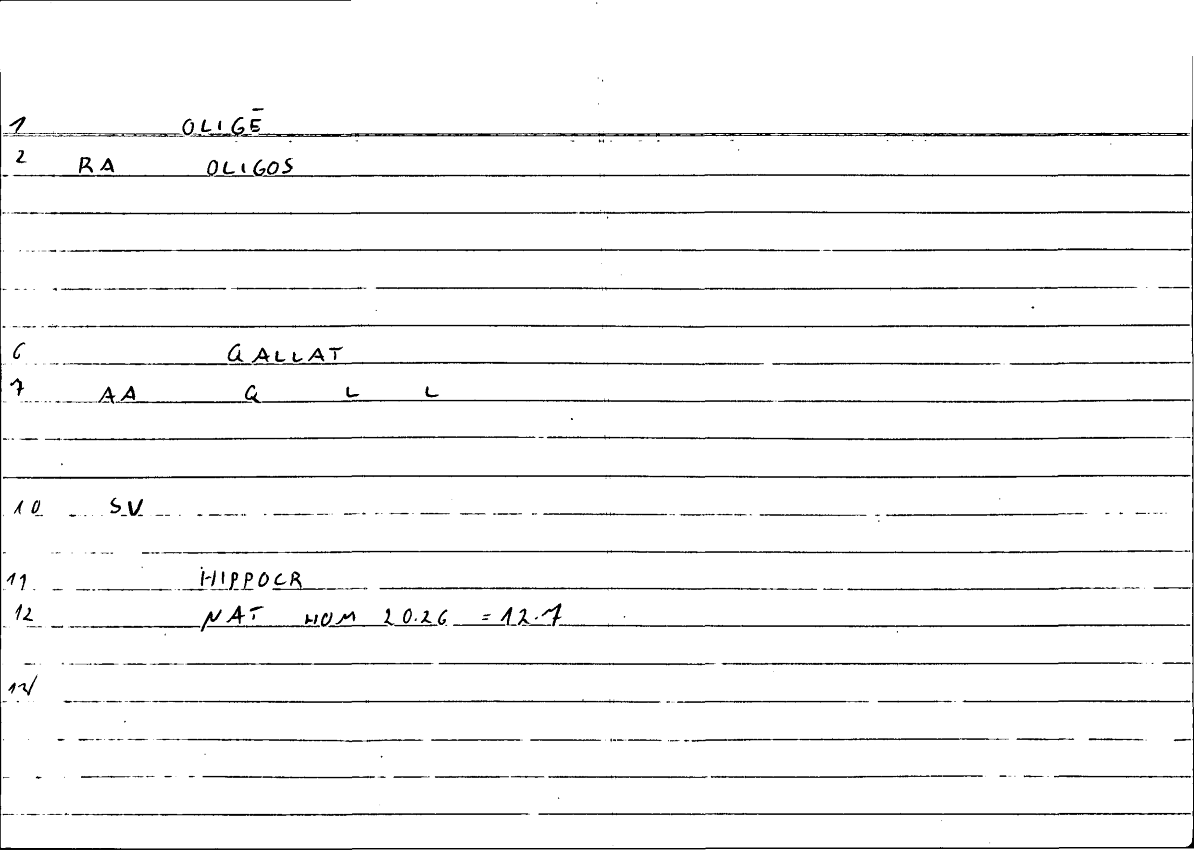 1 OLIGĒ
2 RA OLIGOS
6 QALLAT
7 AA Q L L
10 SV
11 HIPPOCR
12 NAT HOM 20.26 = 12.7